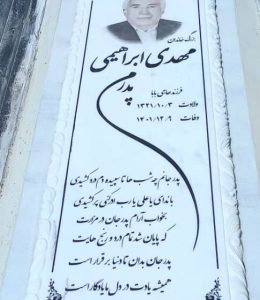 بزرگ خاندان
مهدی ابراهیمی
پدر من
فرزند حاجی بابا
ولادت ۱۳۲۱/۱۰/۳
وفات ۱۴۰۱/۱۲/۹
پدر جانم چه شب ها تا سپیده دم درد کشیدی
با ندای یا علی یا رب اوف پر کشیدی
بخواب آرام پدر جان در مزارت
که پایان شد تمام درد و رنج هایت
پدر جان بدان تا دنیا برقرار است
همیشه یادت در دل ما یادگار است